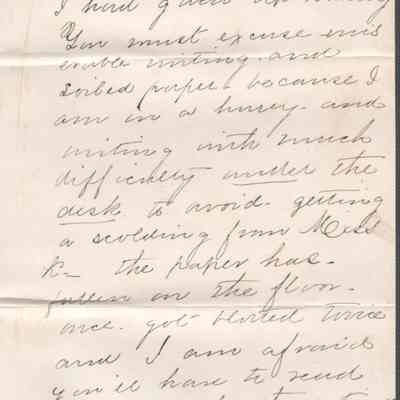 I had given up
You must excuse mis
erable writing and
soiled paper because I
am in a hurry and
writing with much
difficulty under the
desk to avoid getting
a scolding from Miss
K— the paper has
fallen on the floor
once got blotted twice
and I am afraid
you'll have to read